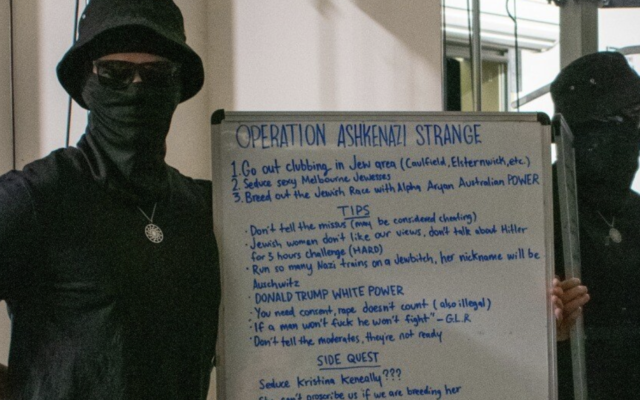 OPERATION ASHKENAZI STRANGE
1. Go out clubbing in Jew area (Caulfield, Elsternwick, etc)
2. Seduce sexy Melbourne Jewesses
3. Breed out the Jewish Race with Alpha Aryan Australian POWER
TIPS
· Don't tell the missus (may be considered cheating)
· Jewish women don't like our views, don't talk about Hitler
for 5 hours challenge (HARD)
· Run so many Nazi trains on a Jewbitch, her nickname will be
Auschwitz
· DONALD TRUMP WHITE POWER
· You need consent, rape doesn't count (also illegal)
· "If a man won't fuck he won't fight" - G.L.R
· Don't tell the moderates, they're not ready
SIDE QUEST
Seduce Kristina Keneally???
can't proscribe us if we are breeding her